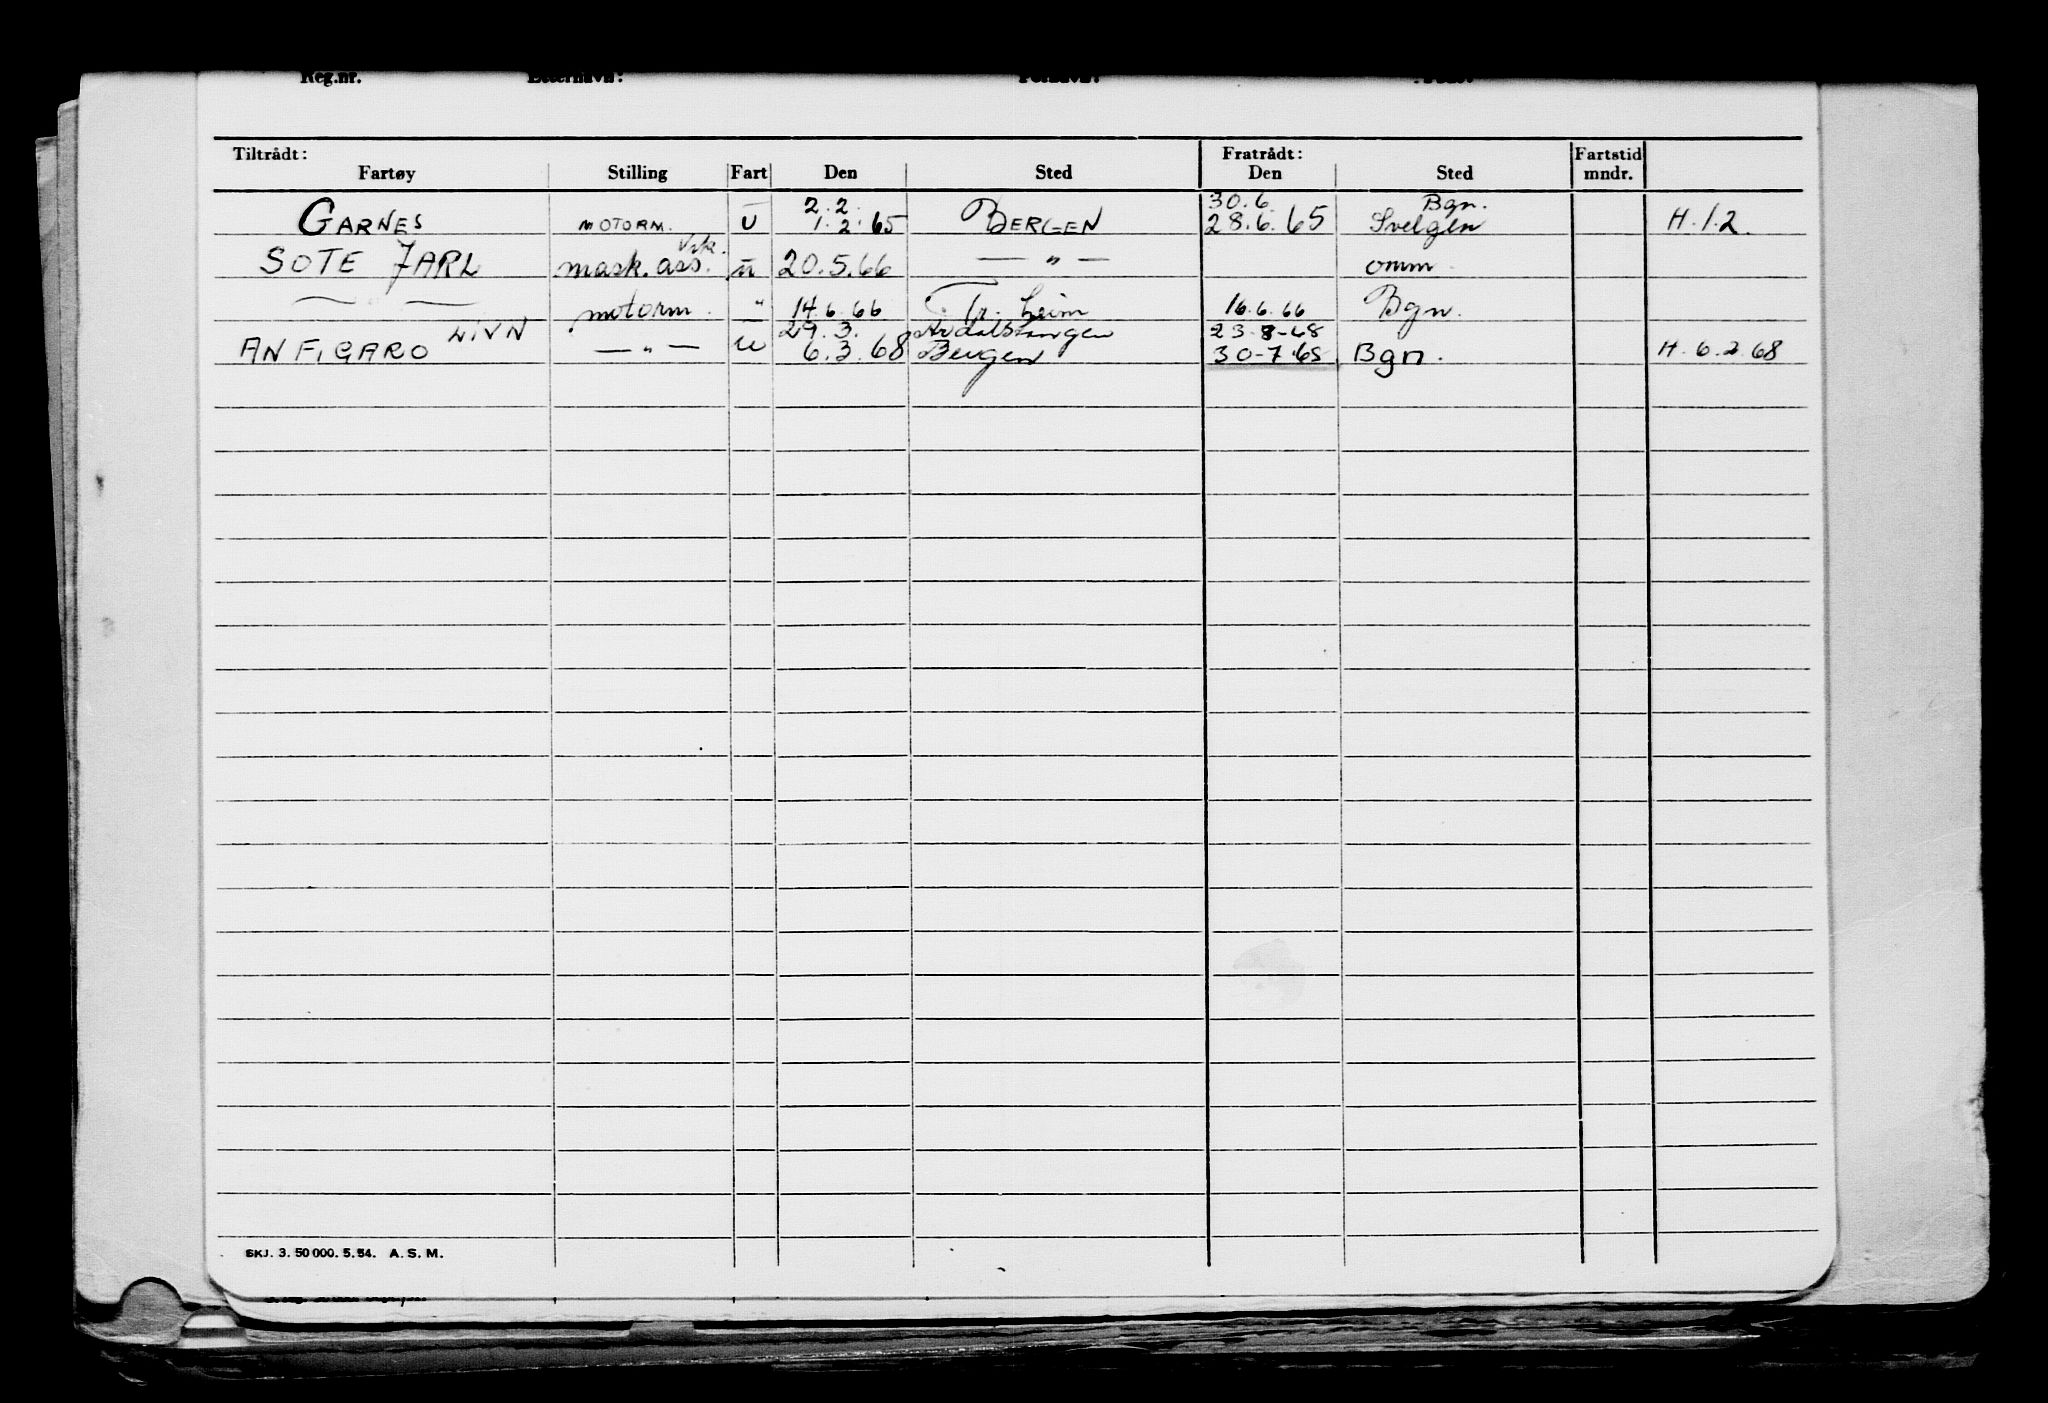 Reg.nr. Etternavn: Fornavn:
Tiltrådt: Fratrådt: Fartstid
Fartøy Stilling Fart Den Sted Den Sted mndr.
2.2. 30.6. Bgn.
GARNES MOTORM. U 1.2.65 BERGEN 28.6.65 Svelgen H. 1.2.
Vik.
SOTE JARL mask. ass. U 20.5.66 — " — omm.
— " — motorm. " 14.6.66 Tr. heim 16.6.66 Bgn.
LINN 29.3. Årdalstangen 23-8-68
ANFIGARO — " — U 6.3.68 Bergen 30-7-68 Bgn. H. 6.2.68
SKJ. 3. 50 000. 5. 54. A. S. M.